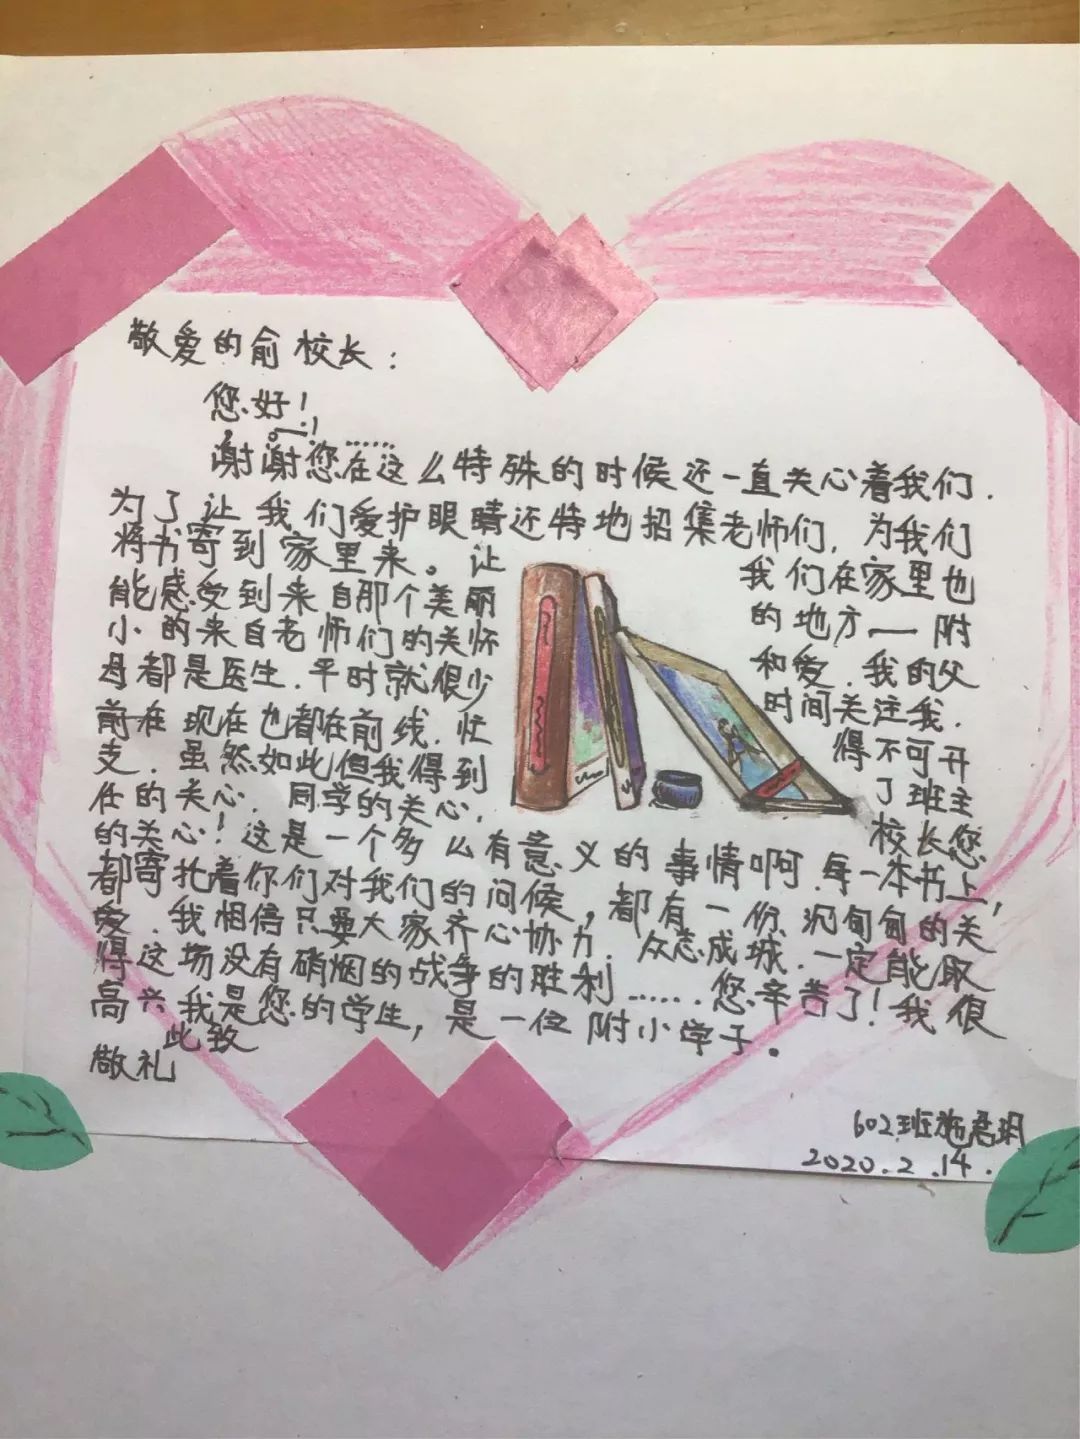 敬爱的俞校长：
您好！
谢谢您在这么特殊的时候还一直关心着我们.
为了让我们爱护眼睛还特地招集老师们,为我们
将书寄到家里来。让我们在家里也
能感受到来自那个美丽的地方——附
小的来自老师们的关怀和爱.我的父
母都是医生.平时就很少时间关注我.
前在现在也都在前线.忙得不可开
支.虽然如此但我得到了班主
任的关心.同学的关心,校长您
的关心!这是一个多么有意义的事情啊.每一本书上,
都寄托着你们对我们的问候,都有一份沉甸甸的关
爱.我相信只要大家齐心协力.众志成城.一定能取
得这场没有硝烟的战争的胜利……您辛苦了!我很
高兴我是您的学生,是一位附小学子。
此致
敬礼
602班施君玥
2020.2.14.